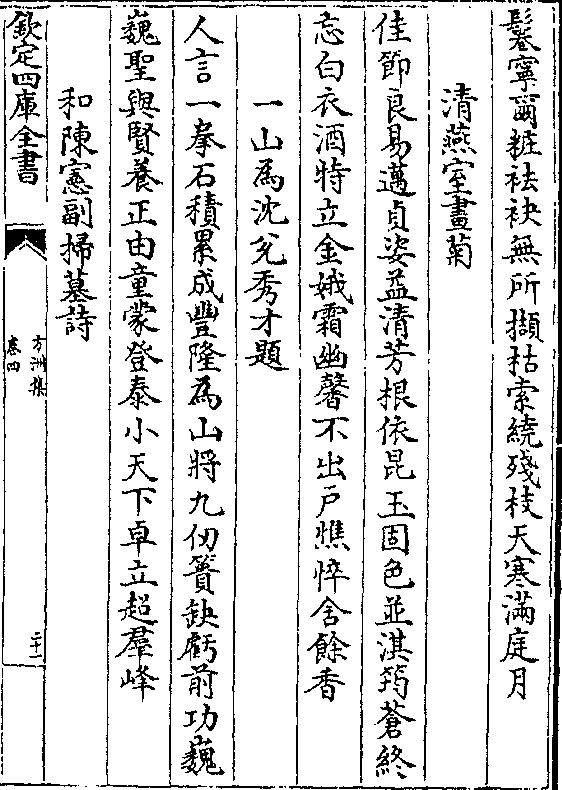 鬈寧爾粧袪袂無所擷枯索繞殘枝天寒滿庭月
清燕室畫菊
佳節良易邁貞姿益清芳根依昆玉固色並淇筠蒼終
忘白衣酒特立金娥霜幽馨不出戸憔悴含餘香
一山為沈兊秀才題
人言一拳石積累成豐隆為山將九仞簣缺虧前功巍
巍聖與賢養正由童蒙登泰小天下卓立超羣峰
和陳憲副掃墓詩
欽定四庫全書
方洲集
卷四
二十一